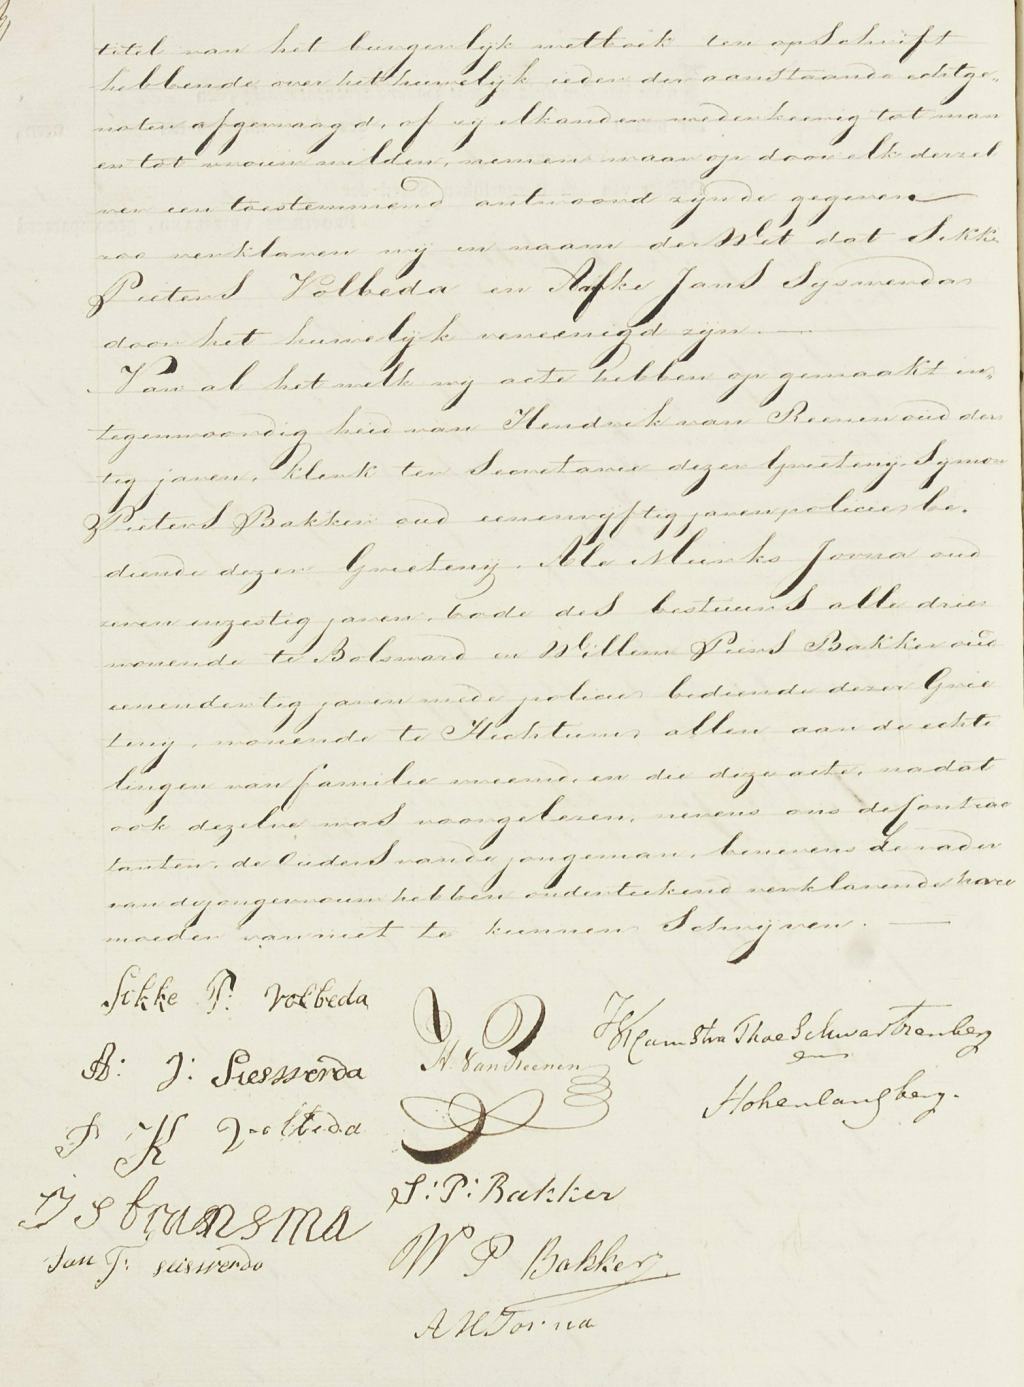 titel van het burgerlijk wetboek ten opschrift
hebbende over het huwelijk ieder der aanstaande echtge„
noten afgevraagd, of zij elkander wederkeerig tot man
en tot vrouw wilden nemen waar op door elk derzel
ver een toestemmend antwoord zijnde gegeven
zoo verklaren wij in naam der Wet dat Sikke
Pieters Volbeda en Aafke Jans Syswerda
door het huwelijk vereenigd zijn. —
Van al het welk wij acte hebben op gemaakt in„
tegenwoordig heid van Hendrik van Reenen oud der
tig jaren, klerk ter Secretarie dezer Grietenij Symon
Pieters Bakker oud eenenvijftig jaren policie be„
diende dezer Grietenij. Ale Murks Jorna oud
zeven enzestig jaren, bode des bestuurs alle drie
wonende te Bolsward en Willem Piers Bakker oud
eenendertig jaren mede policie bediende dezer Grie
tenij, wonende te Hichtum, allen aan de echte
lingen van familie vreemd, en die deze acte, nadat
ook dezelve was voorgelezen, nevens ons de Contrac
tanten, de Ouders van de jongeman, benevens de vader
van de jongevrouw hebben onderteekend verklarende hare
moeder van niet te kunnen Schrijven. —
Sikke P: Volbeda
H. Van Reenen
Kamstra Thoe Schwartzenberg
en
A: J: Siesswerda
Hohenlansberg.
P K Volbeda
S: P: Bakker
I Sbransma
W P Bakker
Jan T: sieswerda
A M Jorna